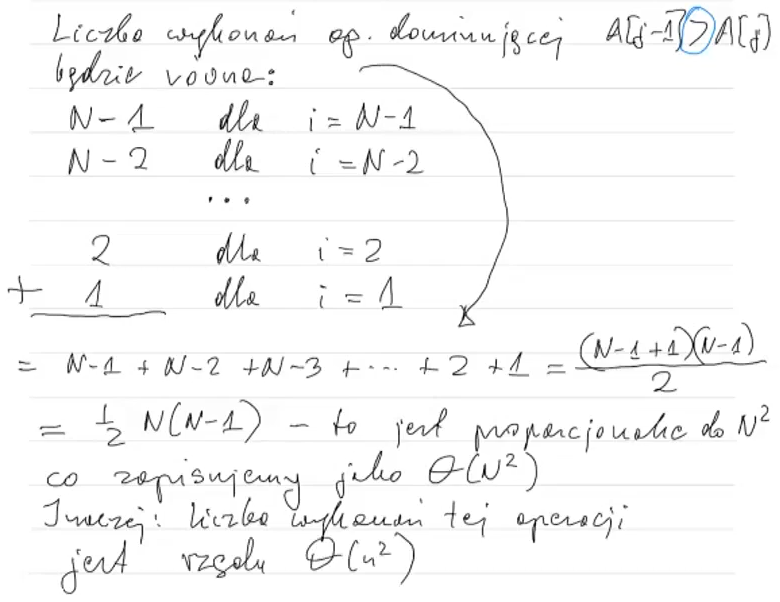 Liczba wykonań op. dominującej A[j-1] > A[j]
będzie równa:
N-1 dla i = N-1
N-2 dla i = N-2
...
2 dla i = 2
+ 1 dla i = 1
= N-1 + N-2 + N-3 + ... + 2 + 1 = (N-1+1)(N-1) / 2
= 1/2 N(N-1) - to jest proporcjonalne do N²
co zapisujemy jako Θ(N²)
Inaczej: liczba wykonań tej operacji
jest rzędu Θ(n²)